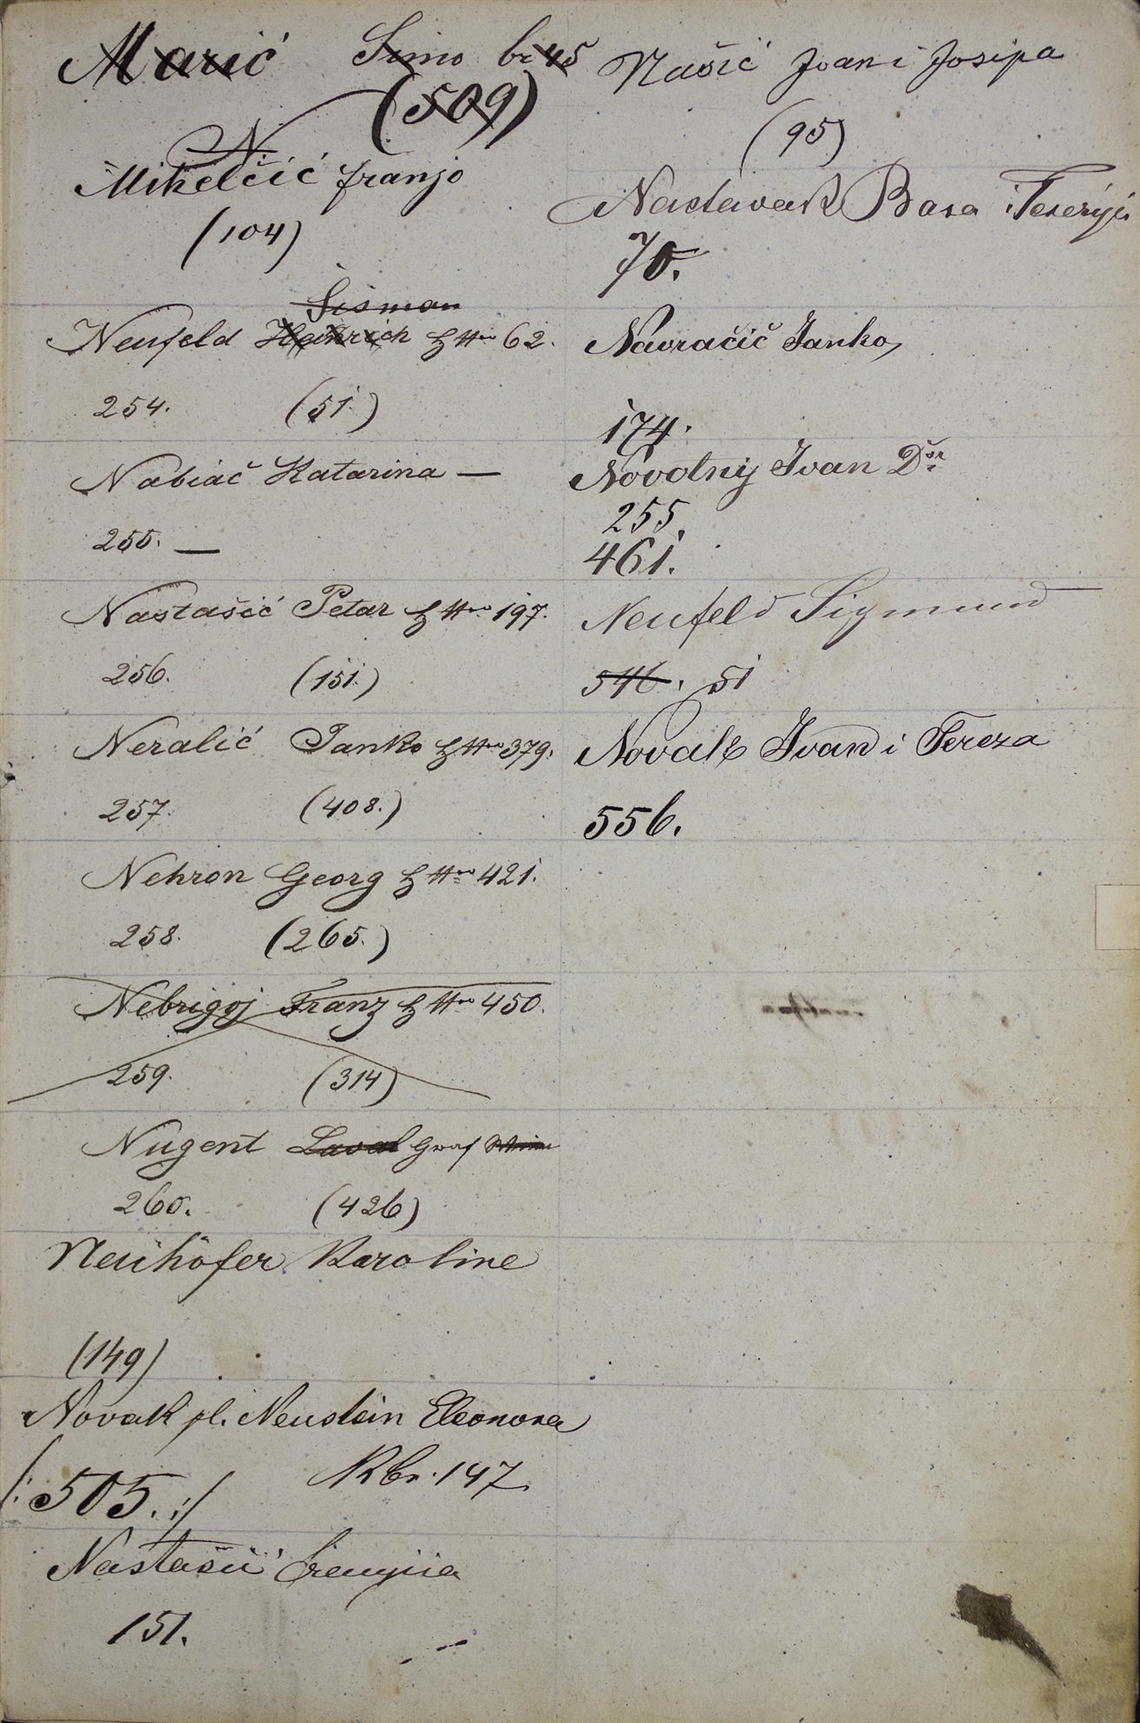 Marić Simo br 45
(509)
N
Mikelčić franjo
(104)
Šisman
Neufeld Heinrich H Nro 62.
254. (51.)
Nabiač Katarina —
255. —
Nastašić Petar H Nro 197.
256. (151.)
Neralić Janko H Nro 379.
257. (408.)
Nehron Georg H Nro 421.
258. (265.)
Nebrigoj Franz H Nro 450.
259. (314)
Nugent Laval Graf
260. (426)
Neuhöfer Karoline
(149)
Novak pl. Neustein Eleonora
/: 505. :/ Kbr. 147
Nastašić
151.
Našić Ivan i Josipa
(95)
Nadavak Bara i
70.
Navračič Janko,
174.
Novotny Ivan Dor
255.
461.
Neufeld Sigmund
546. 51
Novak Ivan i Tereza
556.